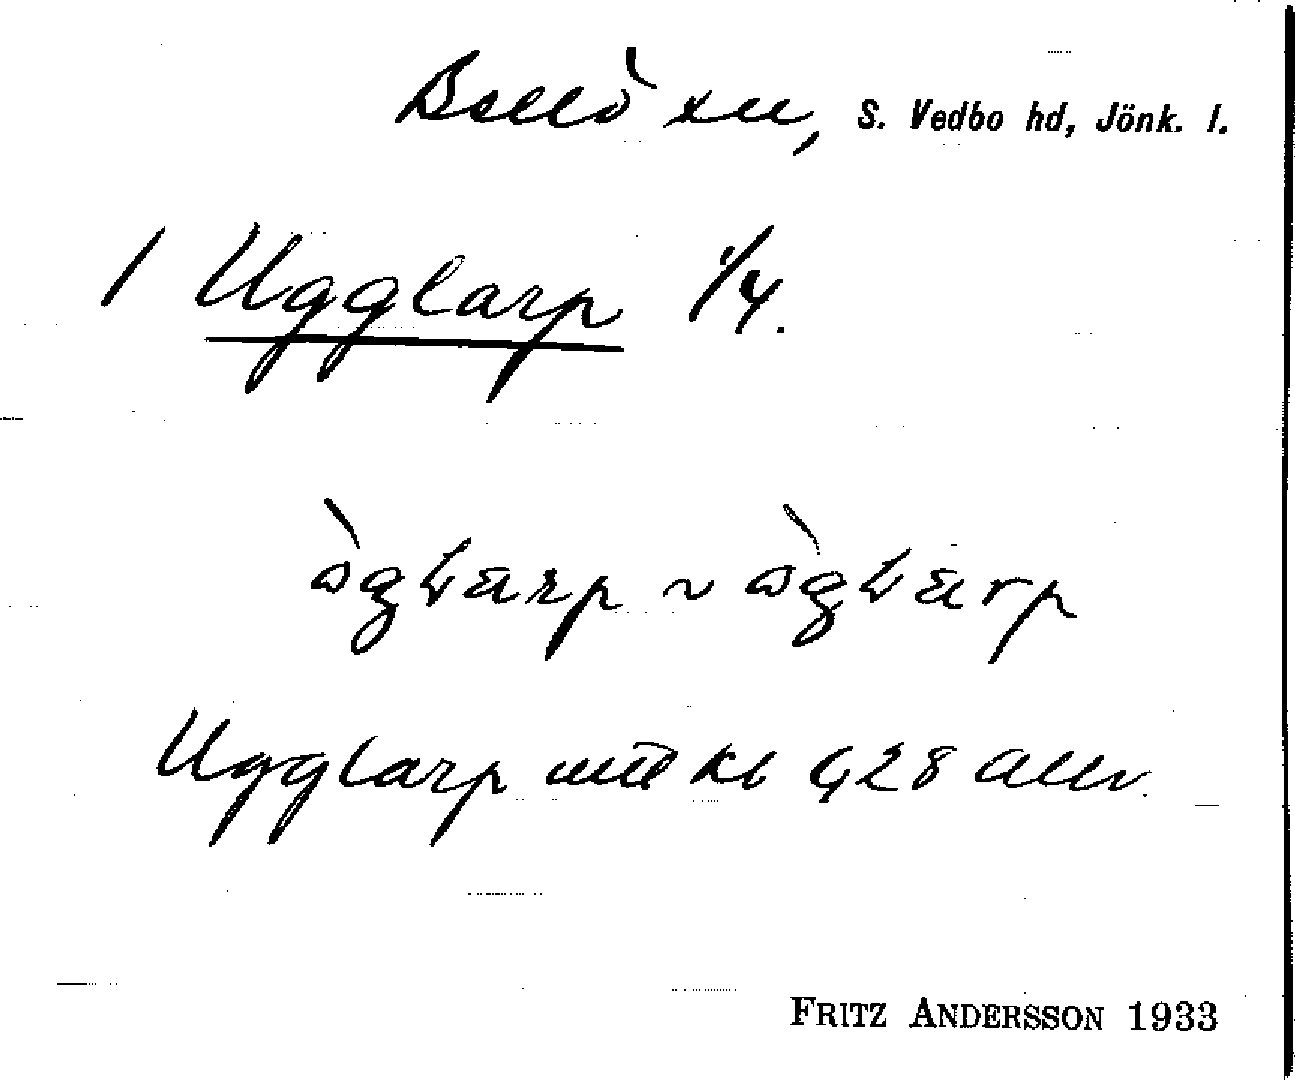 Bellö sn, S. Vedbo hd, Jönk. l.
1 Ugglarp 1/4.
ògłarp ~ ògłarp
Ugglarp mtl kb 4,28 allm.
FRITZ ANDERSSON 1933